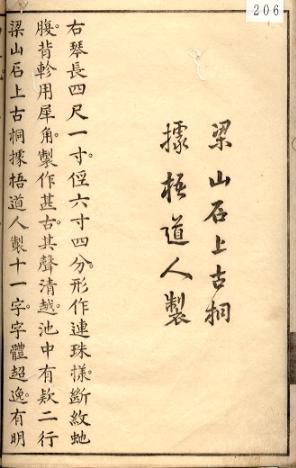 206
梁山石上古桐
據梧道人製
右琴長四尺一寸。徑六寸四分。形作連珠樣。斷紋虵
腹。背軫用犀角。製作甚古。其聲清越。池中有款二行
梁山石上古桐據梧道人製十一字。字體超逸。有明